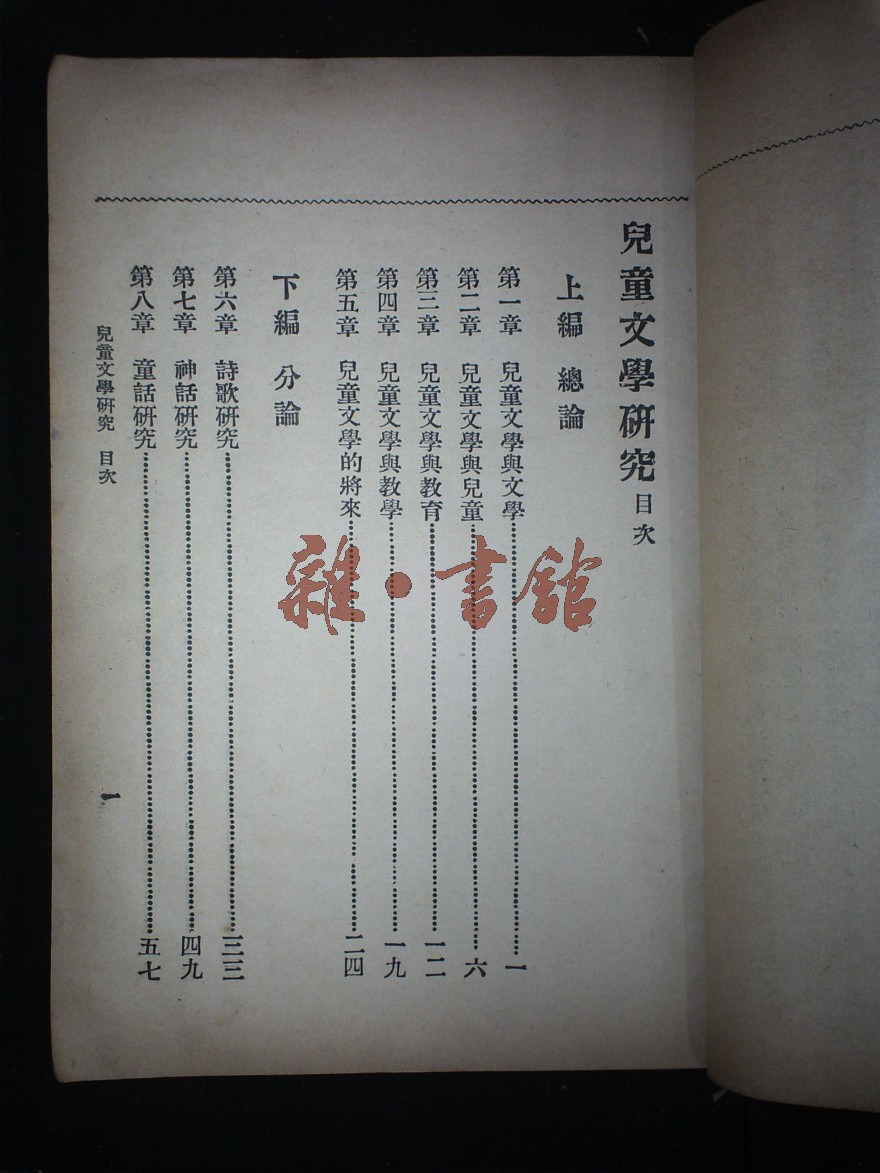 兒童文學研究 目次
上編 總論
第一章 兒童文學與文學……一
第二章 兒童文學與兒童……六
第三章 兒童文學與教育……一二
第四章 兒童文學與教學……一九
第五章 兒童文學的將來……二四
下編 分論
第六章 詩歌研究……三三
第七章 神話研究……四九
第八章 童話研究……五七
兒童文學研究 目次
一
雜·書館